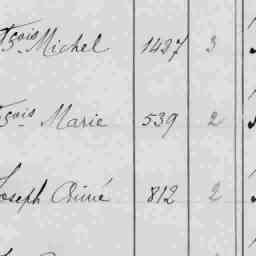 çois Michel 1427 3
çois Marie 539 2
Joseph Aimé 812 2